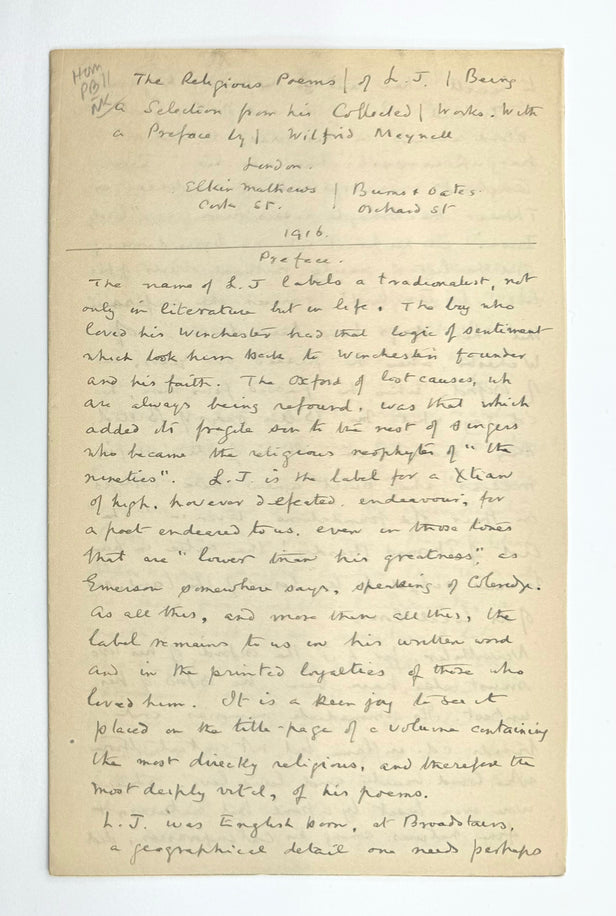 HUM
PB11
The Religious Poems | of L. J. | Being
a Selection from his Collected | Works. With
a Preface by | Wilfrid Meynell
London.
Elkin Mathews | Burns & Oates.
Cork St. Orchard St
1916.
Preface.
The name of L. J labels a tradionalist, not
only in literature but in life. The boy who
loved his Winchester had that logic of sentiment
which took him back to Winchester's founder
and his faith. The Oxford of lost causes, wh
are always being refound, was that which
added its fragile son to the nest of singers
who became the religious neophytes of "the
nineties". L. J. is the label for a Xtian
of high, however defeated, endeavour; for
a poet endeared to us, even in those tones
that are "lower than his greatness", as
Emerson somewhere says, speaking of Coleredge.
As all this, and more than all this, the
label remains to us in his written word
and in the printed loyalties of those who
loved him. It is a keen joy to see it
placed on the title-page of a volume containing
the most directly religious, and therefore the
most deeply vital, of his poems.
L. J. was English born, at Broadstairs,
a geographical detail one needs perhaps